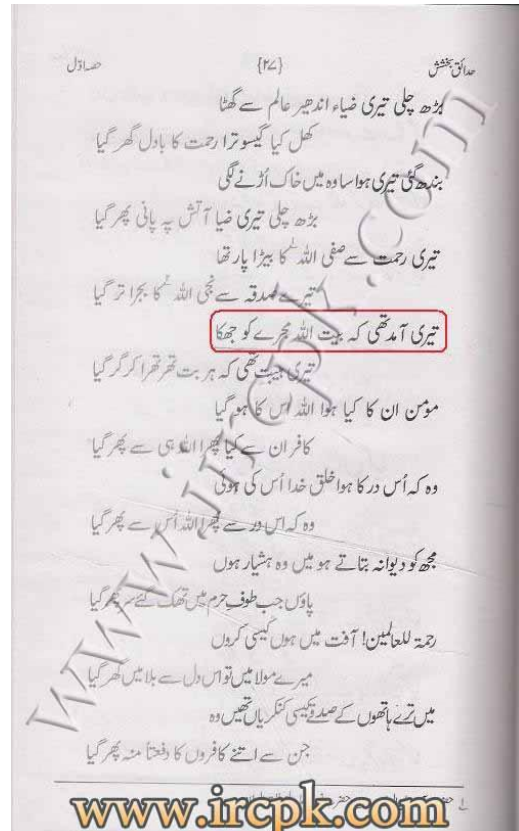 حدائق بخشش {۲۷} حصہ اوّل
بڑھ چلی تیری ضیاء اندھیر عالم سے گھٹا
کھل گیا گیسو ترا رحمت کا بادل گھر گیا
بندھ گئی تیری ہوا ساوہ میں خاک اُڑنے لگی
بڑھ چلی تیری ضیا آتش پہ پانی پھر گیا
تیری رحمت سے صفی اللہ کا بیڑا پار تھا
تیرے صدقہ سے نجی اللہ کا بجرا تر گیا
تیری آمد تھی کہ بیت اللہ مجرے کو جھکا
تیری ہیبت تھی کہ ہر بت تھر تھرا کر گر گیا
مومن ان کا کیا ہوا اللہ اس کا ہو گیا
کافر ان سے کیا پھرا اللہ ہی سے پھر گیا
وہ کہ اُس در کا ہوا خلق خدا اُس کی ہوئی
وہ کہ اس در سے پھرا اللہ اُس سے پھر گیا
مجھ کو دیوانہ بتاتے ہو میں وہ ہشیار ہوں
پاؤں جب طوف حرم میں تھک گئے سر پھر گیا
رحمۃ للعالمین! آفت میں ہوں کیسی کروں
میرے مولا میں تو اس دل سے بلا میں گھر گیا
میں ترے ہاتھوں کے صدقے کیسی کنکریاں تھیں وہ
جن سے اتنے کافروں کا دفعتاً منہ پھر گیا
www.ircpk.com
www.ircpk.com